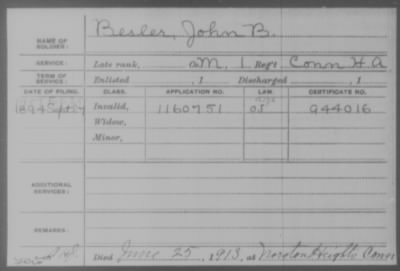 NAME OF SOLDIER: Besler, John B.
SERVICE: Late rank, Co. M, 1 Reg't Conn H.A.
TERM OF SERVICE: Enlisted , 1 Discharged , 1
DATE OF FILING. CLASS. APPLICATION NO. LAW. CERTIFICATE NO.
1894 Sept Invalid, 1160751 944016
Widow,
Minor,
ADDITIONAL SERVICES:
REMARKS:
Died June 25, 1913, at Noroton Heights Conn